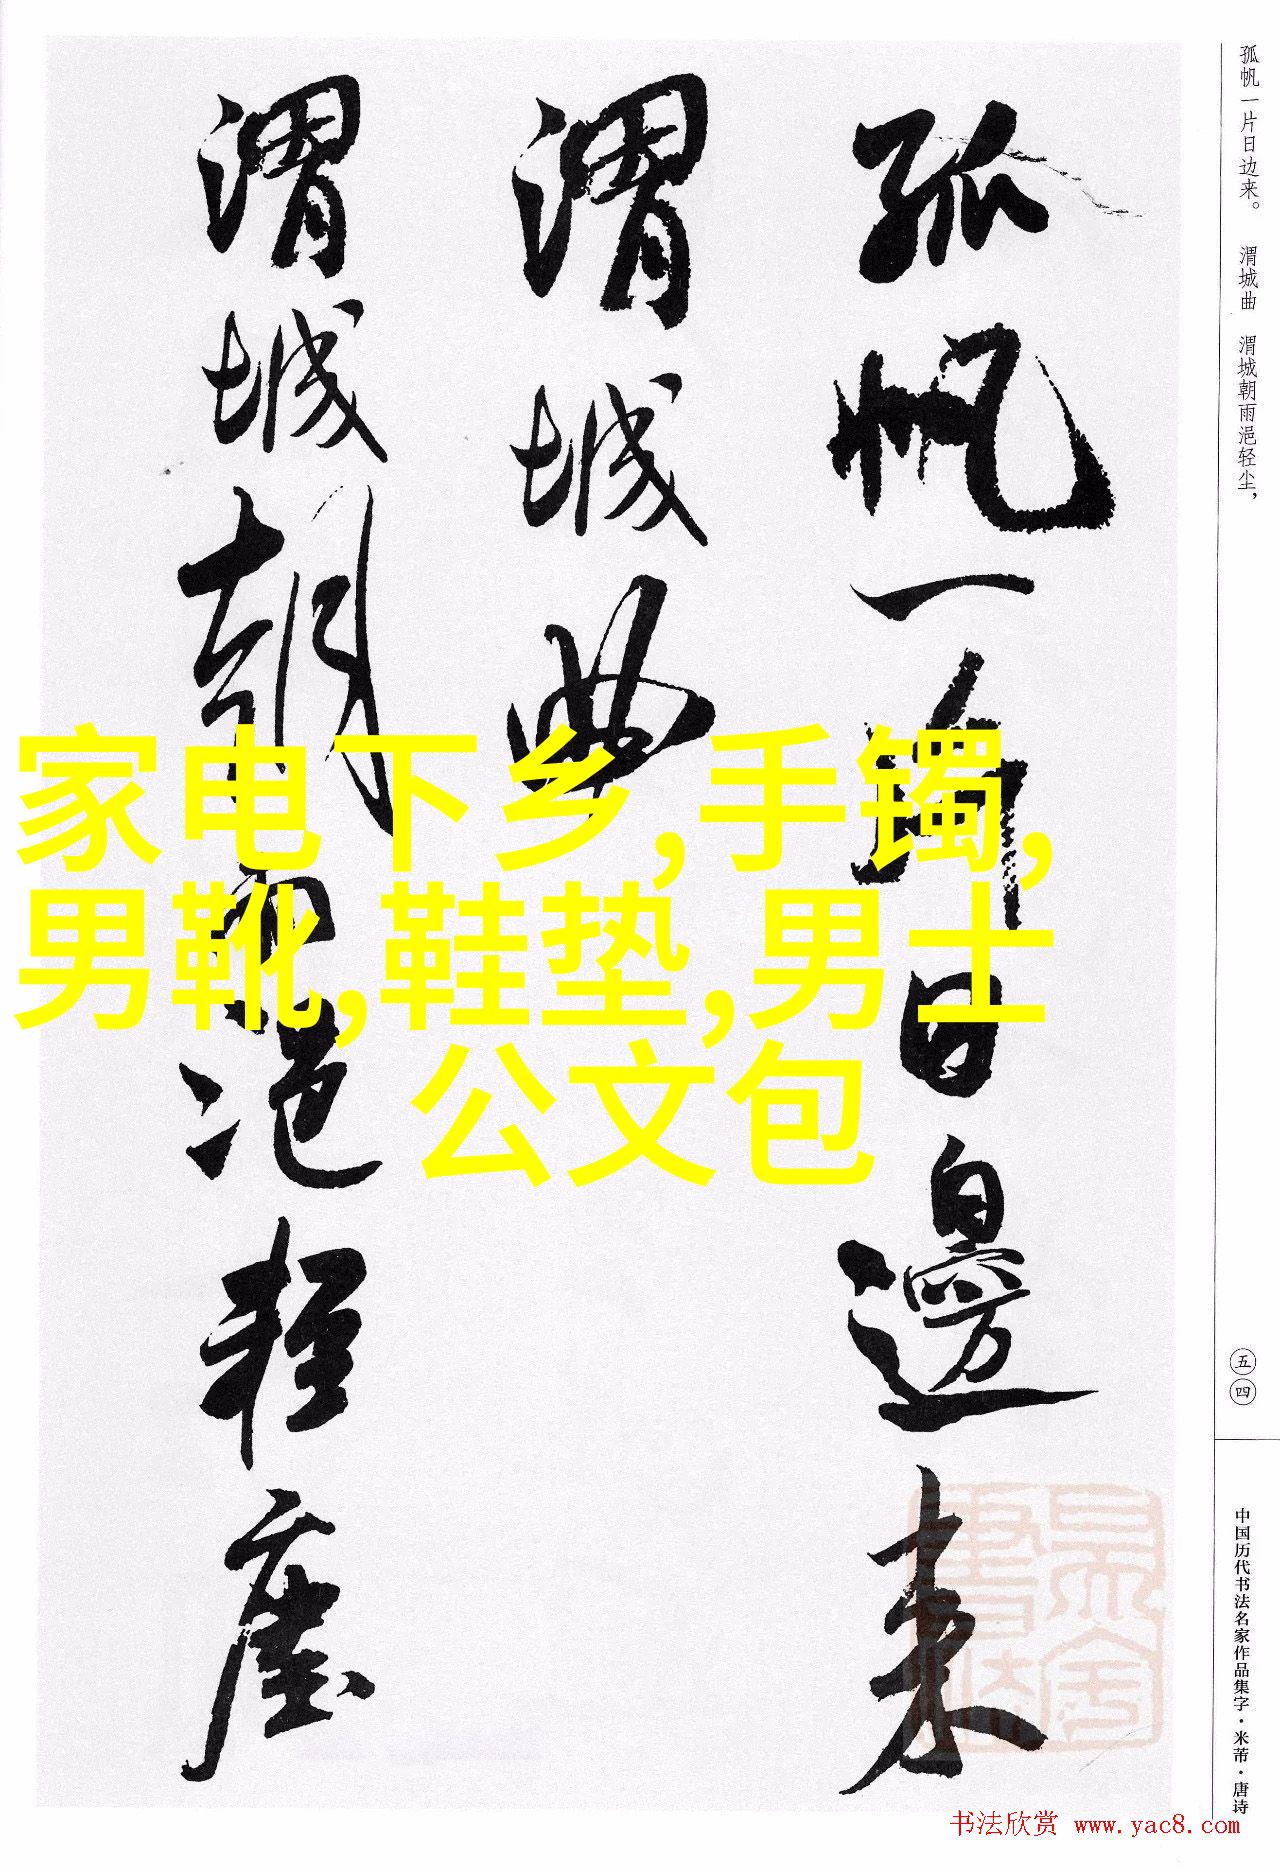 孤帆一片日边来。 渭城曲 渭城朝雨浥轻尘,
孤帆一片日邊来
渭城曲
渭城朝雨浥轻塵
家电下乡,手镯,
男靴,鞋垫,男士
公文包
五四
中国历代书法名家作品集字·米芾·唐诗
书法欣赏 www.yac8.com